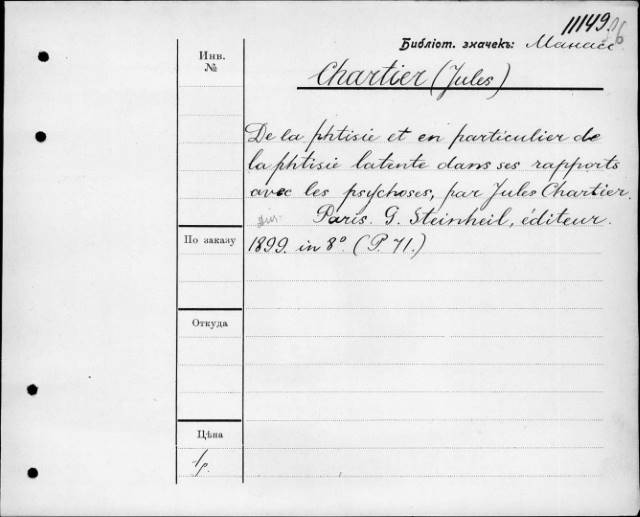 11149
Библіот. значекъ: Манасс
Инв.
№
Chartier (Jules)
De la phtisie et en particulier de
la phtisie latente dans ses rapports
avec les psychoses, par Jules Chartier.
Paris. G. Steinheil, éditeur.
По заказу
1899. in 8° (P. 71.)
Откуда
Цѣна
1р.